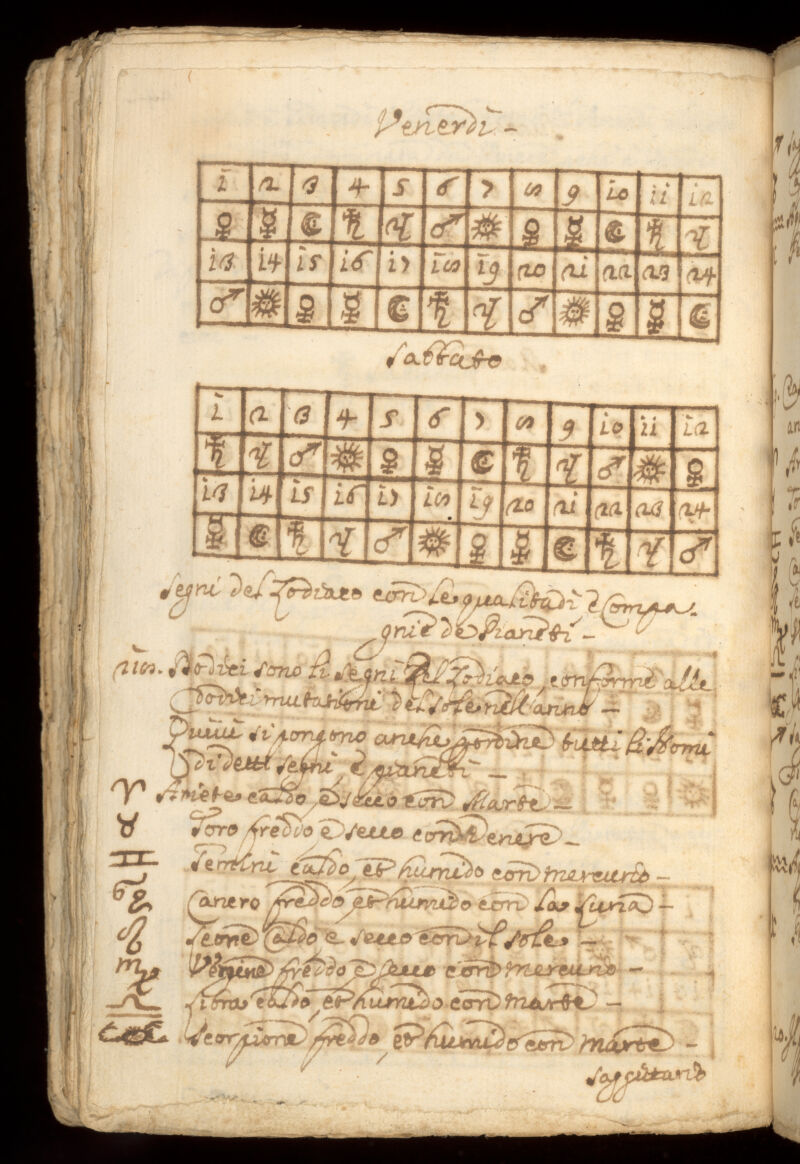 Venerdi -
1 2 3 4 5 6 7 8 9 10 11 12
♀ ☿ ☾ ♄ ♃ ♂ ☉ ♀ ☿ ☾ ♄ ♃
13 14 15 16 17 18 19 20 21 22 23 24
♂ ☉ ♀ ☿ ☾ ♄ ♃ ♂ ☉ ♀ ☿ ☾
Sabbato
1 2 3 4 5 6 7 8 9 10 11 12
♄ ♃ ♂ ☉ ♀ ☿ ☾ ♄ ♃ ♂ ☉ ♀
13 14 15 16 17 18 19 20 21 22 23 24
☿ ☾ ♄ ♃ ♂ ☉ ♀ ☿ ☾ ♄ ♃ ♂
Segni del Zodiaco con le qualitadi, è Compa-
gnie de Pianeti -
118. Dodici sono li segni del Zodiaco, conforme alle
dodici mutationi del sole nell'anno -
Quivi si pongono anche per ordine tutti li Nomi
di detti segni, è pianeti -
♈ Ariete caldo, è secco con Marte -
♉ Toro freddo, è secco con Venere -
♊ Gemini caldo, et humido con mercurio -
♋ Cancro freddo, et humido con la Luna -
♌ Leone Caldo e secco con il sole -
♍ Vergine freddo, è secco con mercurio -
♎ Libra caldo, et humido con marte -
Scorpione freddo, et humido con marte -
Saggittario